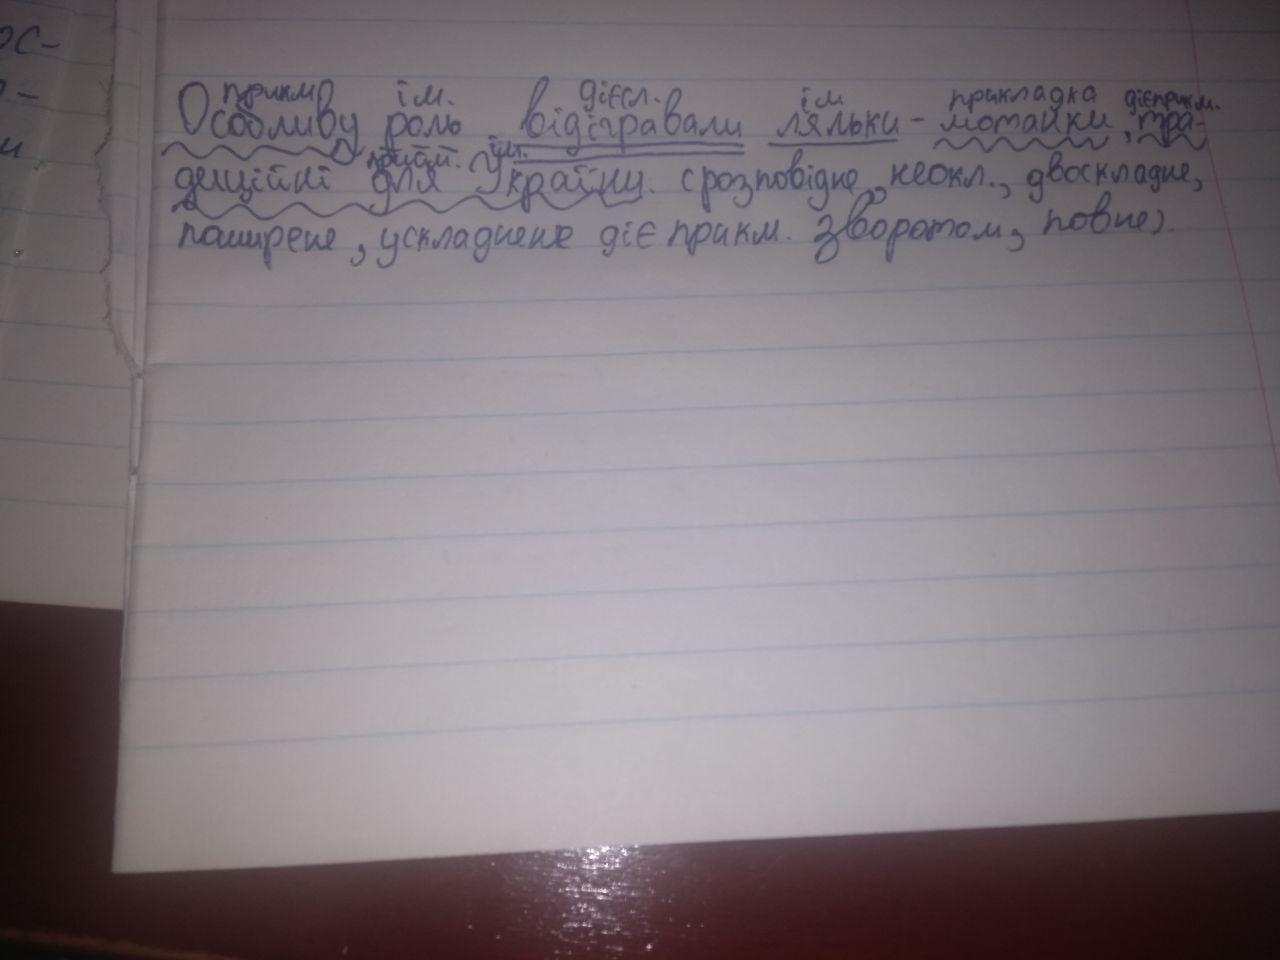 ос-
о-
и
прикм ім. дієсл. ім прикладка дієприкм.
Особливу роль відігравали ляльки - мотанки, тра-
прийм. ім.
диційні для України. (розповідне, неокл., двоскладне,
поширене, ускладнене дієприкм. зворотом, повне).